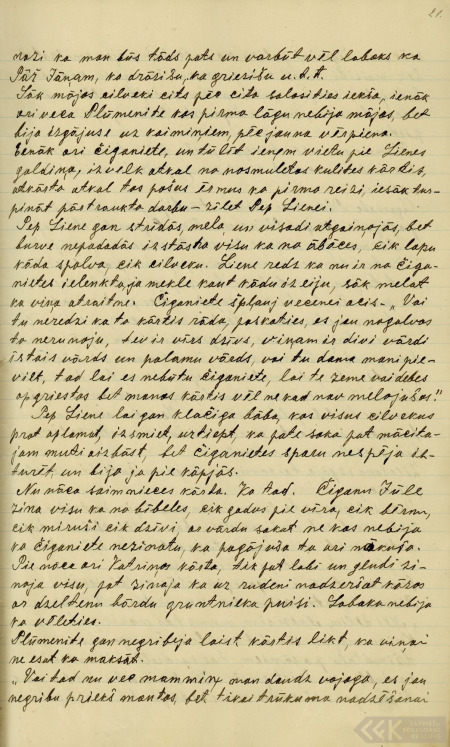 21.
rozi ka man būs tāds pats un varbūt vēl labaks ka
Pāž Jāņam, ka drāzišu, ka griezišu u.t.t.
Sāk mājas cilveki cits pēc cita salasīties iekšā, ienāk
ari veca Plūmenite kas pirma lāgu nebija mājas, bet
bija izgājuse uz kaimiņiem, pēc jauna vērpiena.
Eenāk ari čiganiete, un tūlīt ieņem vietu pie Lienes
galdiņa, izvelk atkal no nosmuletas kulītes kārtis,
atkārto atkal tos pašus ērmus ka pirmo reizi, iesāk tur-
pināt pārtraukto darbu – zilet Pep Lienei.
Pep Liene gan strīdās, melo, un visadi atgaiņojās, bet
burve nepadodas izstāsta visu ka no ābēces, cik lapu
kāda spalva, cik cilveku. Liene redz ka nu ir no čiga-
nietes ielenkta, ja mekle kaut kādu izeju, sāk melot
ka viņa atraitne. Čiganiete spļauj vecenei acis – „Vai
tu neredzi ka to kārtis rāda, paskaties, es jau nogalvos
to nerunoju, tev ir vīrs dzīvs, viņam ir divi vārdi
īstais vārds un palamu vārds, vai tu doma mani pie-
vilt, tad lai es nebūtu čiganiete, lai te zeme vai debes
apgriestos bet manas kārtis vēl nekad nav melojušas."
Pep Liene lai gan klačiga bāba, kas visus cilvekus
prot aplamat, izsmiet, uztiept, ka pate saka pat mācita-
jam muti aizbāst, bet čiganietes sparu nespēja iz-
turēt, un bija ja pie kāpjās.
Nu nāca saimnieces kārta. Ka tad. Čiganu Jūle
zina visu ka no bībeles, cik gadus pie vīra, cik bērnu,
cik miruši cik dzīvi, ar vārdu sakot ne kas nebija
ka čiganiete nezinatu, ka pagājuša ta ari nākuša.
Pie nāce ari Katrinas kārta, tik pat labi un gludi zi-
naja visu, pat zinaja ka uz rudeni nodzeršot kāzas
ar dzelteno bārdu gruntnieka puisi. Labaka nebija
ka vēleties.
Plūmenite gan negribeja laist kārtis likt, ka viņai
ne esot ko maksāt.
„Vai tad nu vec mammiņ man daudz vajaga, es jau
negribu priekš mantas, bet tikai trūkuma nodzīšanai